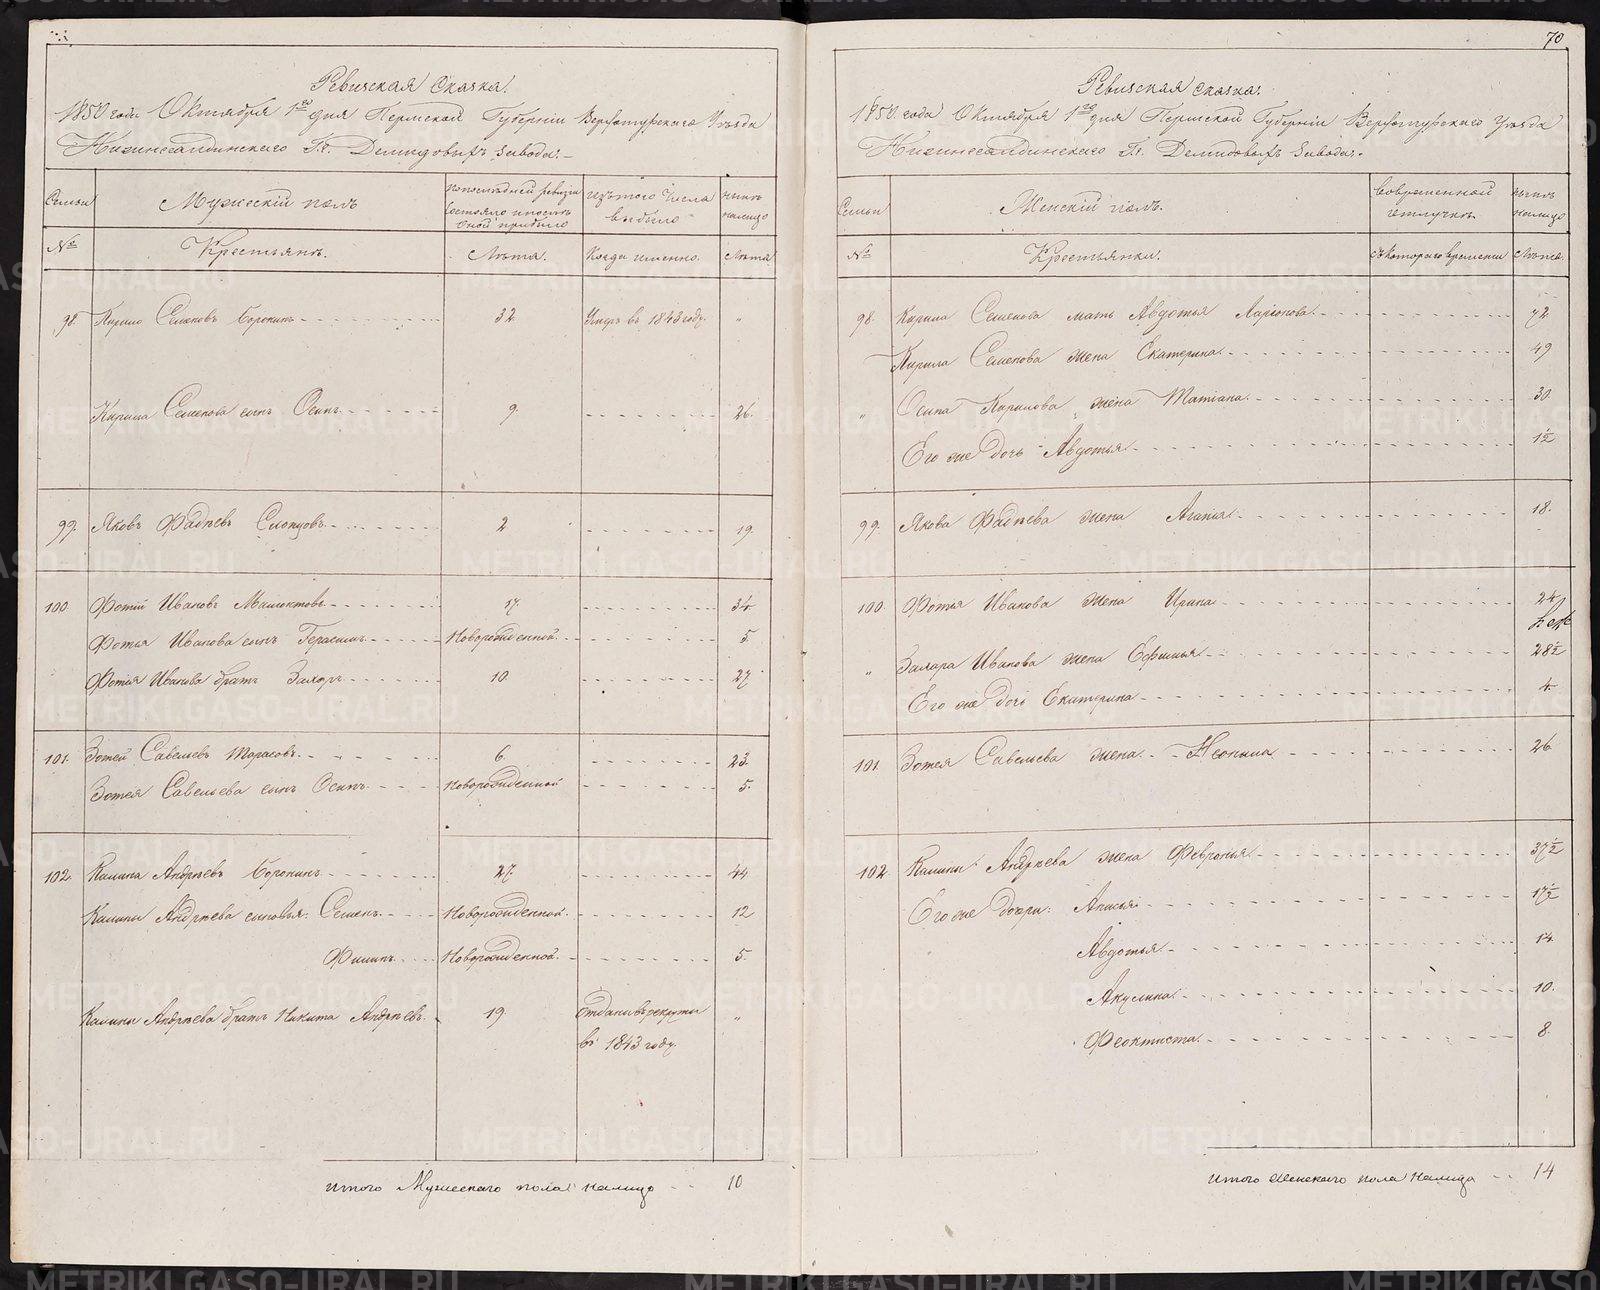 Ревизская сказка.
1850 года Октября 1го дня Пермской Губернiи Верхотурскаго Уѣзда
Нижнесалдинскаго Гг. Демидовыхъ завода.
Семьи
Мужескiй полъ
По послѣдней ревизiи состояло и послѣ оной прибыло
Изъ того числа выбыло
Нынѣ на лицо
№
Крестьянъ.
Лѣта.
Когда именно.
Лѣта
98. Кирило Семеновъ Сорокинъ 32 Умеръ въ 1843 году. "
Кирила Семенова сынъ Осипъ 9. 26.
99. Яковъ Фадѣевъ 2 19.
100. Фотiй Ивановъ 17. 34.
Фотiя Иванова сынъ Герасимъ Новорожденной 5.
Фотiя Иванова братъ 10. 27
101. Зотей Савельевъ Тарасовъ 6 23.
Зотея Савельева сынъ Осипъ Новорожденной 5.
102. Калина Андрѣевъ Сорокинъ 27. 44
Калины Андрѣева сыновья: Семенъ Новорожденной 12
Филипъ Новорожденной 5.
Калины Андрѣева братъ Никита Андрѣевъ 19. Отданъ въ рекруты "
въ 1843 году.
Итого Мужескаго пола на лицо 10
70
Ревизская сказка.
1850 года Октября 1го дня Пермской Губернiи Верхотурскаго Уѣзда
Нижнесалдинскаго Гг. Демидовыхъ завода.
Семьи
Женскiй полъ.
Во временной отлучкѣ
Нынѣ на лицо
№
Крестьянки.
Съ котораго времени
Лѣта.
98. Кирила Семенова мать Авдотья Ларiонова. 72.
Кирила Семенова жена Екатерина. 49
" Осипа Кирилова жена Татiана. 30.
Его же дочь Авдотья 1½
99. Якова Фадѣева жена Агапiя 18.
100. Фотiя Иванова жена Ирина 24.
" Иванова жена Ефимья 28½
Его же дочь Екатерина 4.
101. Зотея Савельева жена Неонила 26
102. Калины Андрѣева жена Февронья 37½
Его же дочери: Анисья 17½
Авдотья 14.
Акулина. 10.
Феоктиста. 8.
Итого Женскаго пола на лицо 14
METRIKI.GASO-URAL.RU